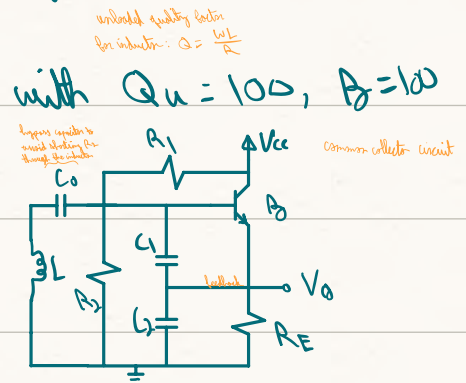 unloaded quality factor
for inductor: Q = ωL/R
with Qu = 100, β = 100
bypass capacitor to
avoid shorting R2
through the inductor
R1
Vcc
common collector circuit
C0
β
C1
L
feedback
Vo
R2
C2
RE